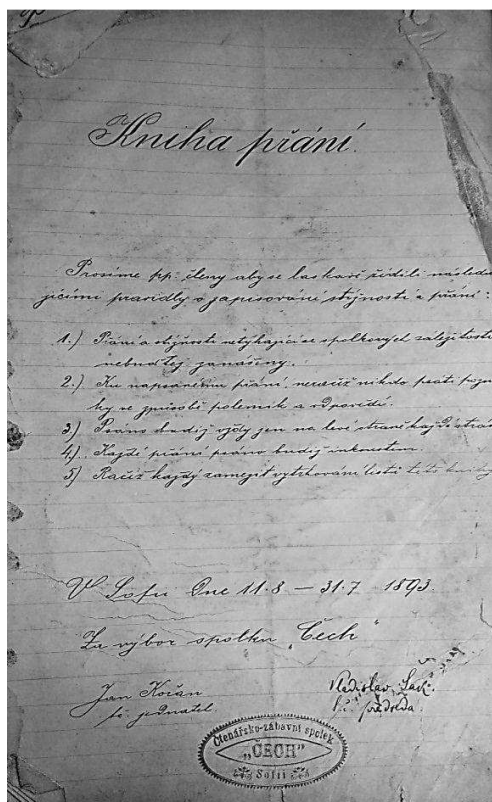 Kniha přání.
Prosíme pp. členy aby se laskavě řídili následu-
jícími pravidly o zapisování stížností a přání:
1.) Přání a stížnosti netýkající se spolkových záležitostí
nebuďtež zanášeny.
2.) Ku napsaným přáním neračiž nikdo psáti poznám
ky ve způsobě polemik a odpovědí.
3) Psáno budiž vždy jen na levé straně každé strán
4). Každé přání psáno budiž inkoustem.
5) Račiž každý zamezit vytrhování listů této knihy
V Sofii Dne 11.8 — 31.7 1893.
Za výbor spolku „Čech“
Jan Kořan
jednatel
Vladislav
předseda.
Čtenářsko-zábavní spolek
„ČECH“
Sofii